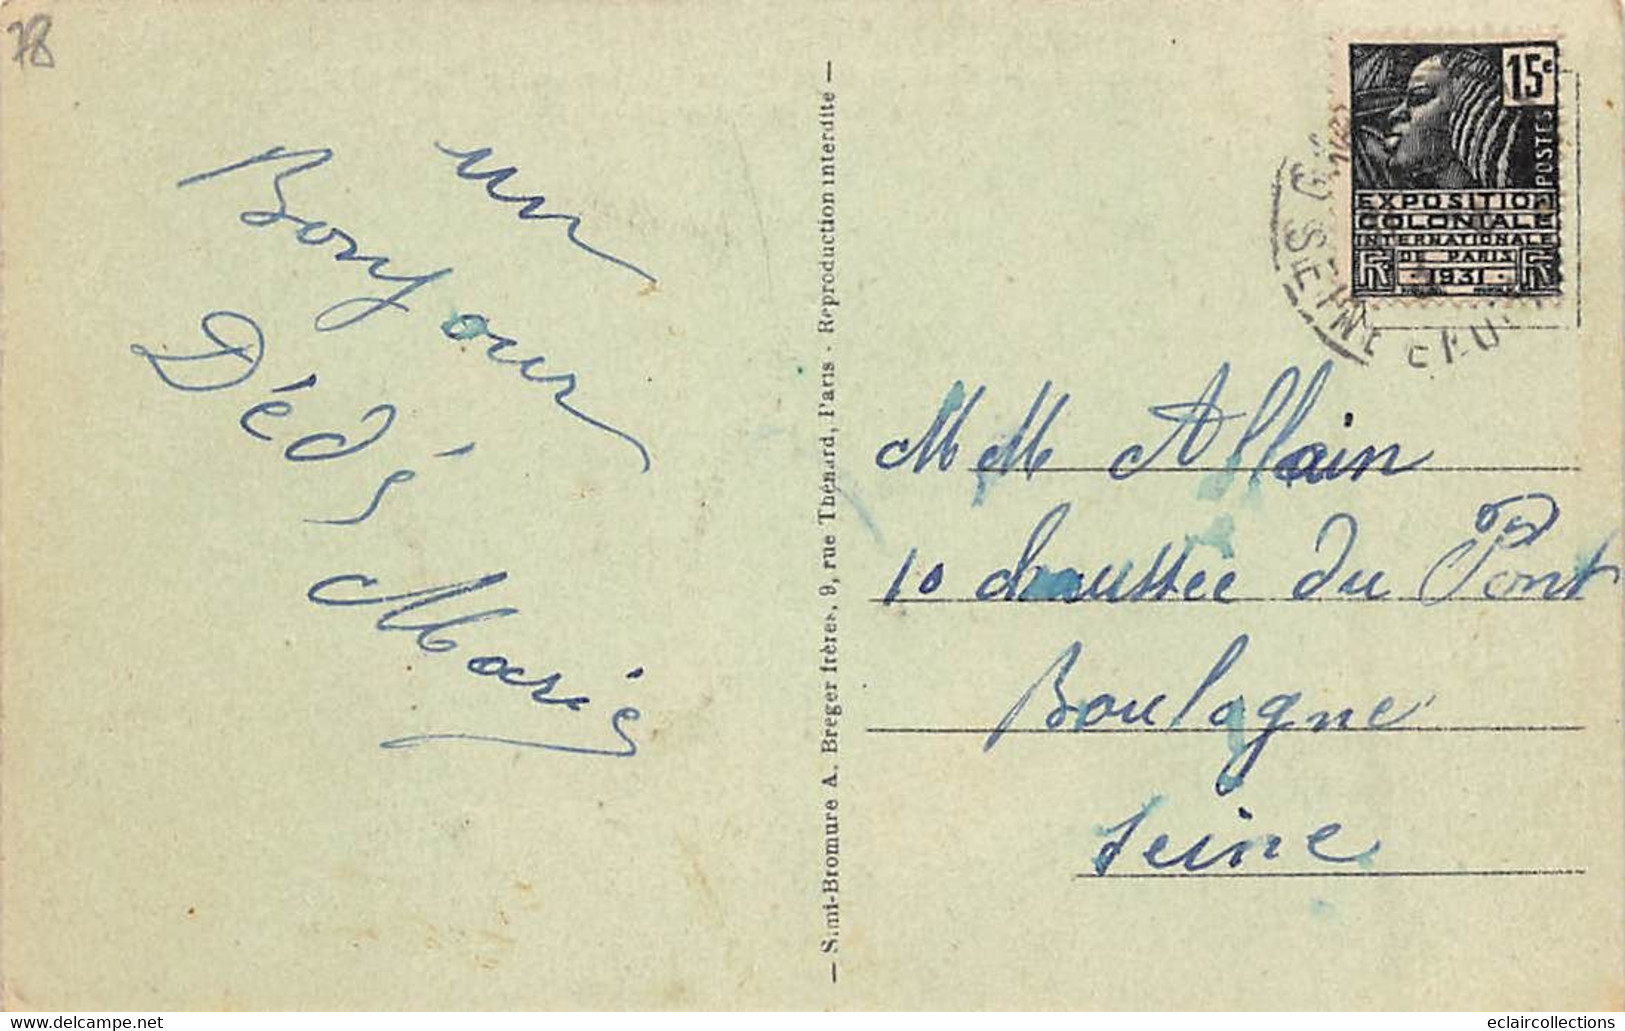 78
un
Bonjour
Dédé
Marie
— Simi-Bromure A. Breger frères, 9, rue Thénard, Paris - Reproduction interdite —
15c
POSTES
EXPOSITION
COLONIALE
INTERNATIONALE
DE PARIS
1931
SEINE
M M Allain
10 chaussée du Pont
Boulogne
Seine
eclaircollections